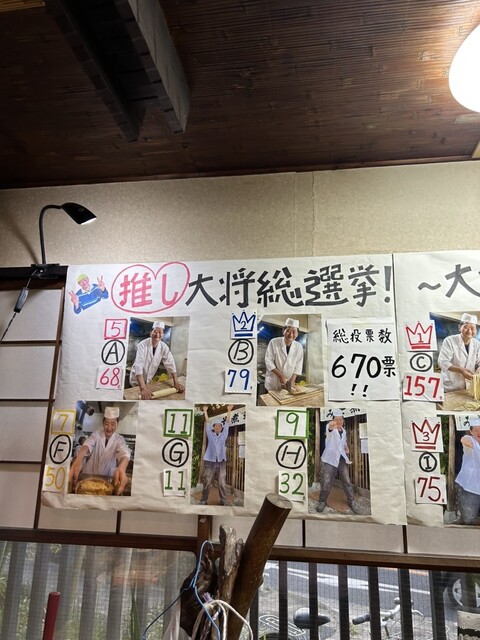 推し大将総選挙!
~大
5
A
68
2
B
79
総投票数
670票
!!
C
157
7
F
50
11
G
11
9
H
32
3
I
75